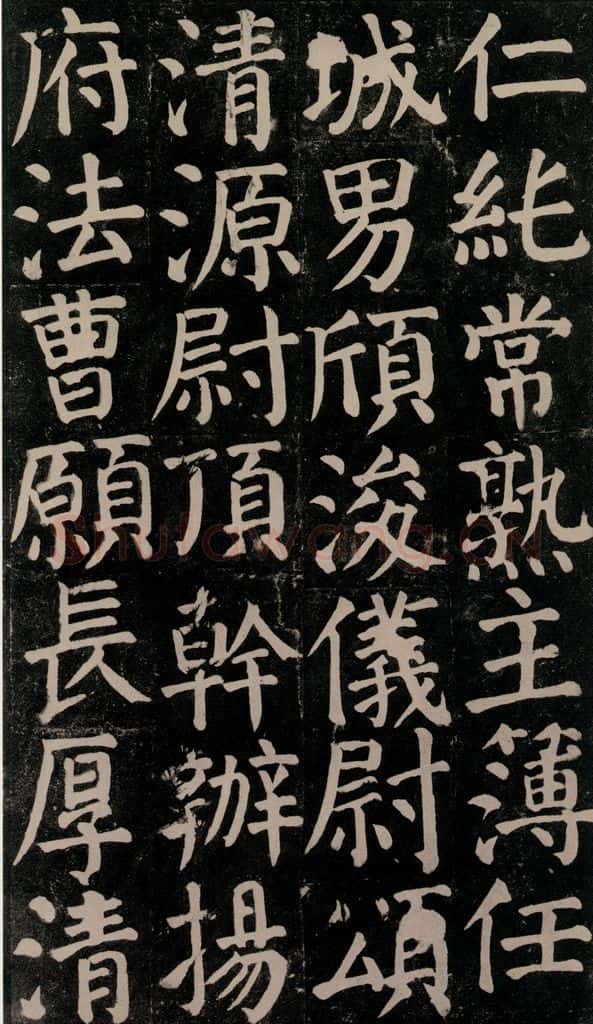 仁純常熟主簿任
城男頎浚儀尉頌
清源尉頂幹辦揚
府法曹願長厚清
Shufawang.CN